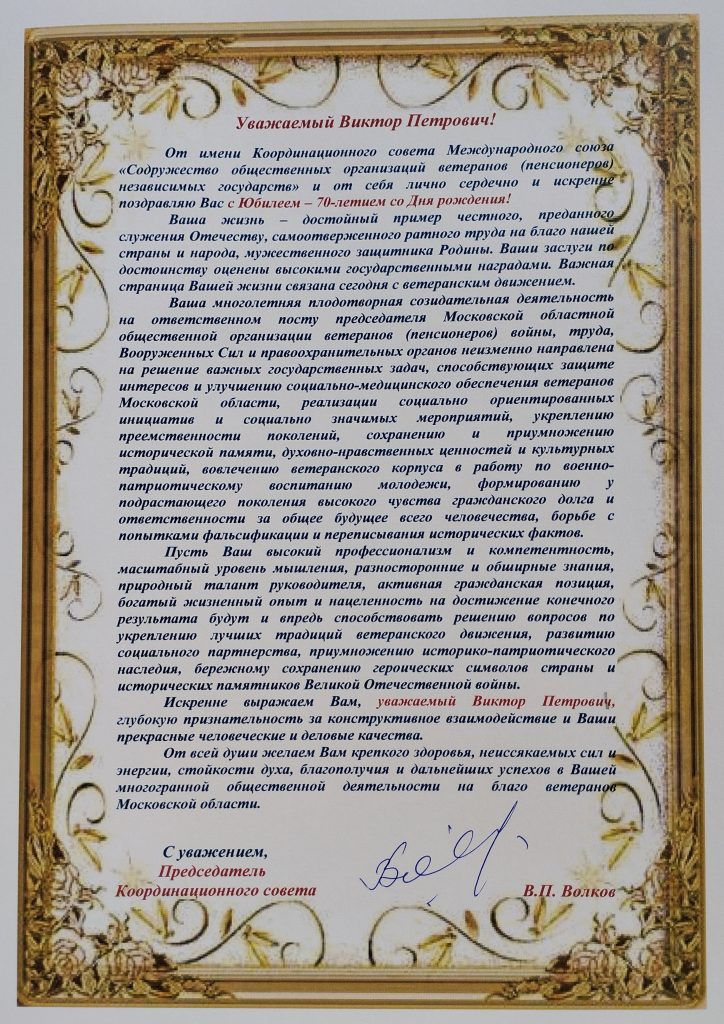 Уважаемый Виктор Петрович!
От имени Координационного совета Международного союза
«Содружество общественных организаций ветеранов (пенсионеров)
независимых государств» и от себя лично сердечно и искренне
поздравляю Вас с Юбилеем – 70-летием со Дня рождения!
Ваша жизнь – достойный пример честного, преданного
служения Отечеству, самоотверженного ратного труда на благо нашей
страны и народа, мужественного защитника Родины. Ваши заслуги по
достоинству оценены высокими государственными наградами. Важная
страница Вашей жизни связана сегодня с ветеранским движением.
Ваша многолетняя плодотворная созидательная деятельность
на ответственном посту председателя Московской областной
общественной организации ветеранов (пенсионеров) войны, труда,
Вооруженных Сил и правоохранительных органов неизменно направлена
на решение важных государственных задач, способствующих защите
интересов и улучшению социально-медицинского обеспечения ветеранов
Московской области, реализации социально ориентированных
инициатив и социально значимых мероприятий, укреплению
преемственности поколений, сохранению и приумножению
исторической памяти, духовно-нравственных ценностей и культурных
традиций, вовлечению ветеранского корпуса в работу по военно-
патриотическому воспитанию молодежи, формированию у
подрастающего поколения высокого чувства гражданского долга и
ответственности за общее будущее всего человечества, борьбе с
попытками фальсификации и переписывания исторических фактов.
Пусть Ваш высокий профессионализм и компетентность,
масштабный уровень мышления, разносторонние и обширные знания,
природный талант руководителя, активная гражданская позиция,
богатый жизненный опыт и нацеленность на достижение конечного
результата будут и впредь способствовать решению вопросов по
укреплению лучших традиций ветеранского движения, развитию
социального партнерства, приумножению историко-патриотического
наследия, бережному сохранению героических символов страны и
исторических памятников Великой Отечественной войны.
Искренне выражаем Вам, уважаемый Виктор Петрович,
глубокую признательность за конструктивное взаимодействие и Ваши
прекрасные человеческие и деловые качества.
От всей души желаем Вам крепкого здоровья, неиссякаемых сил и
энергии, стойкости духа, благополучия и дальнейших успехов в Вашей
многогранной общественной деятельности на благо ветеранов
Московской области.
С уважением,
Председатель
Координационного совета В.П. Волков